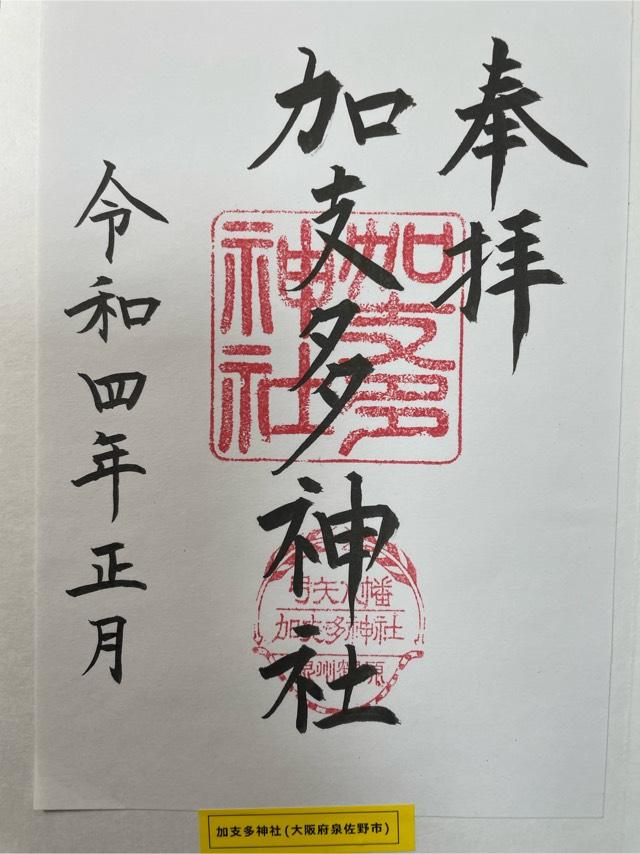 奉拝
加支多神社
令和四年正月
加支多
神社
弓矢八幡
加支多神社
泉州鶴原
加支多神社(大阪府泉佐野市)